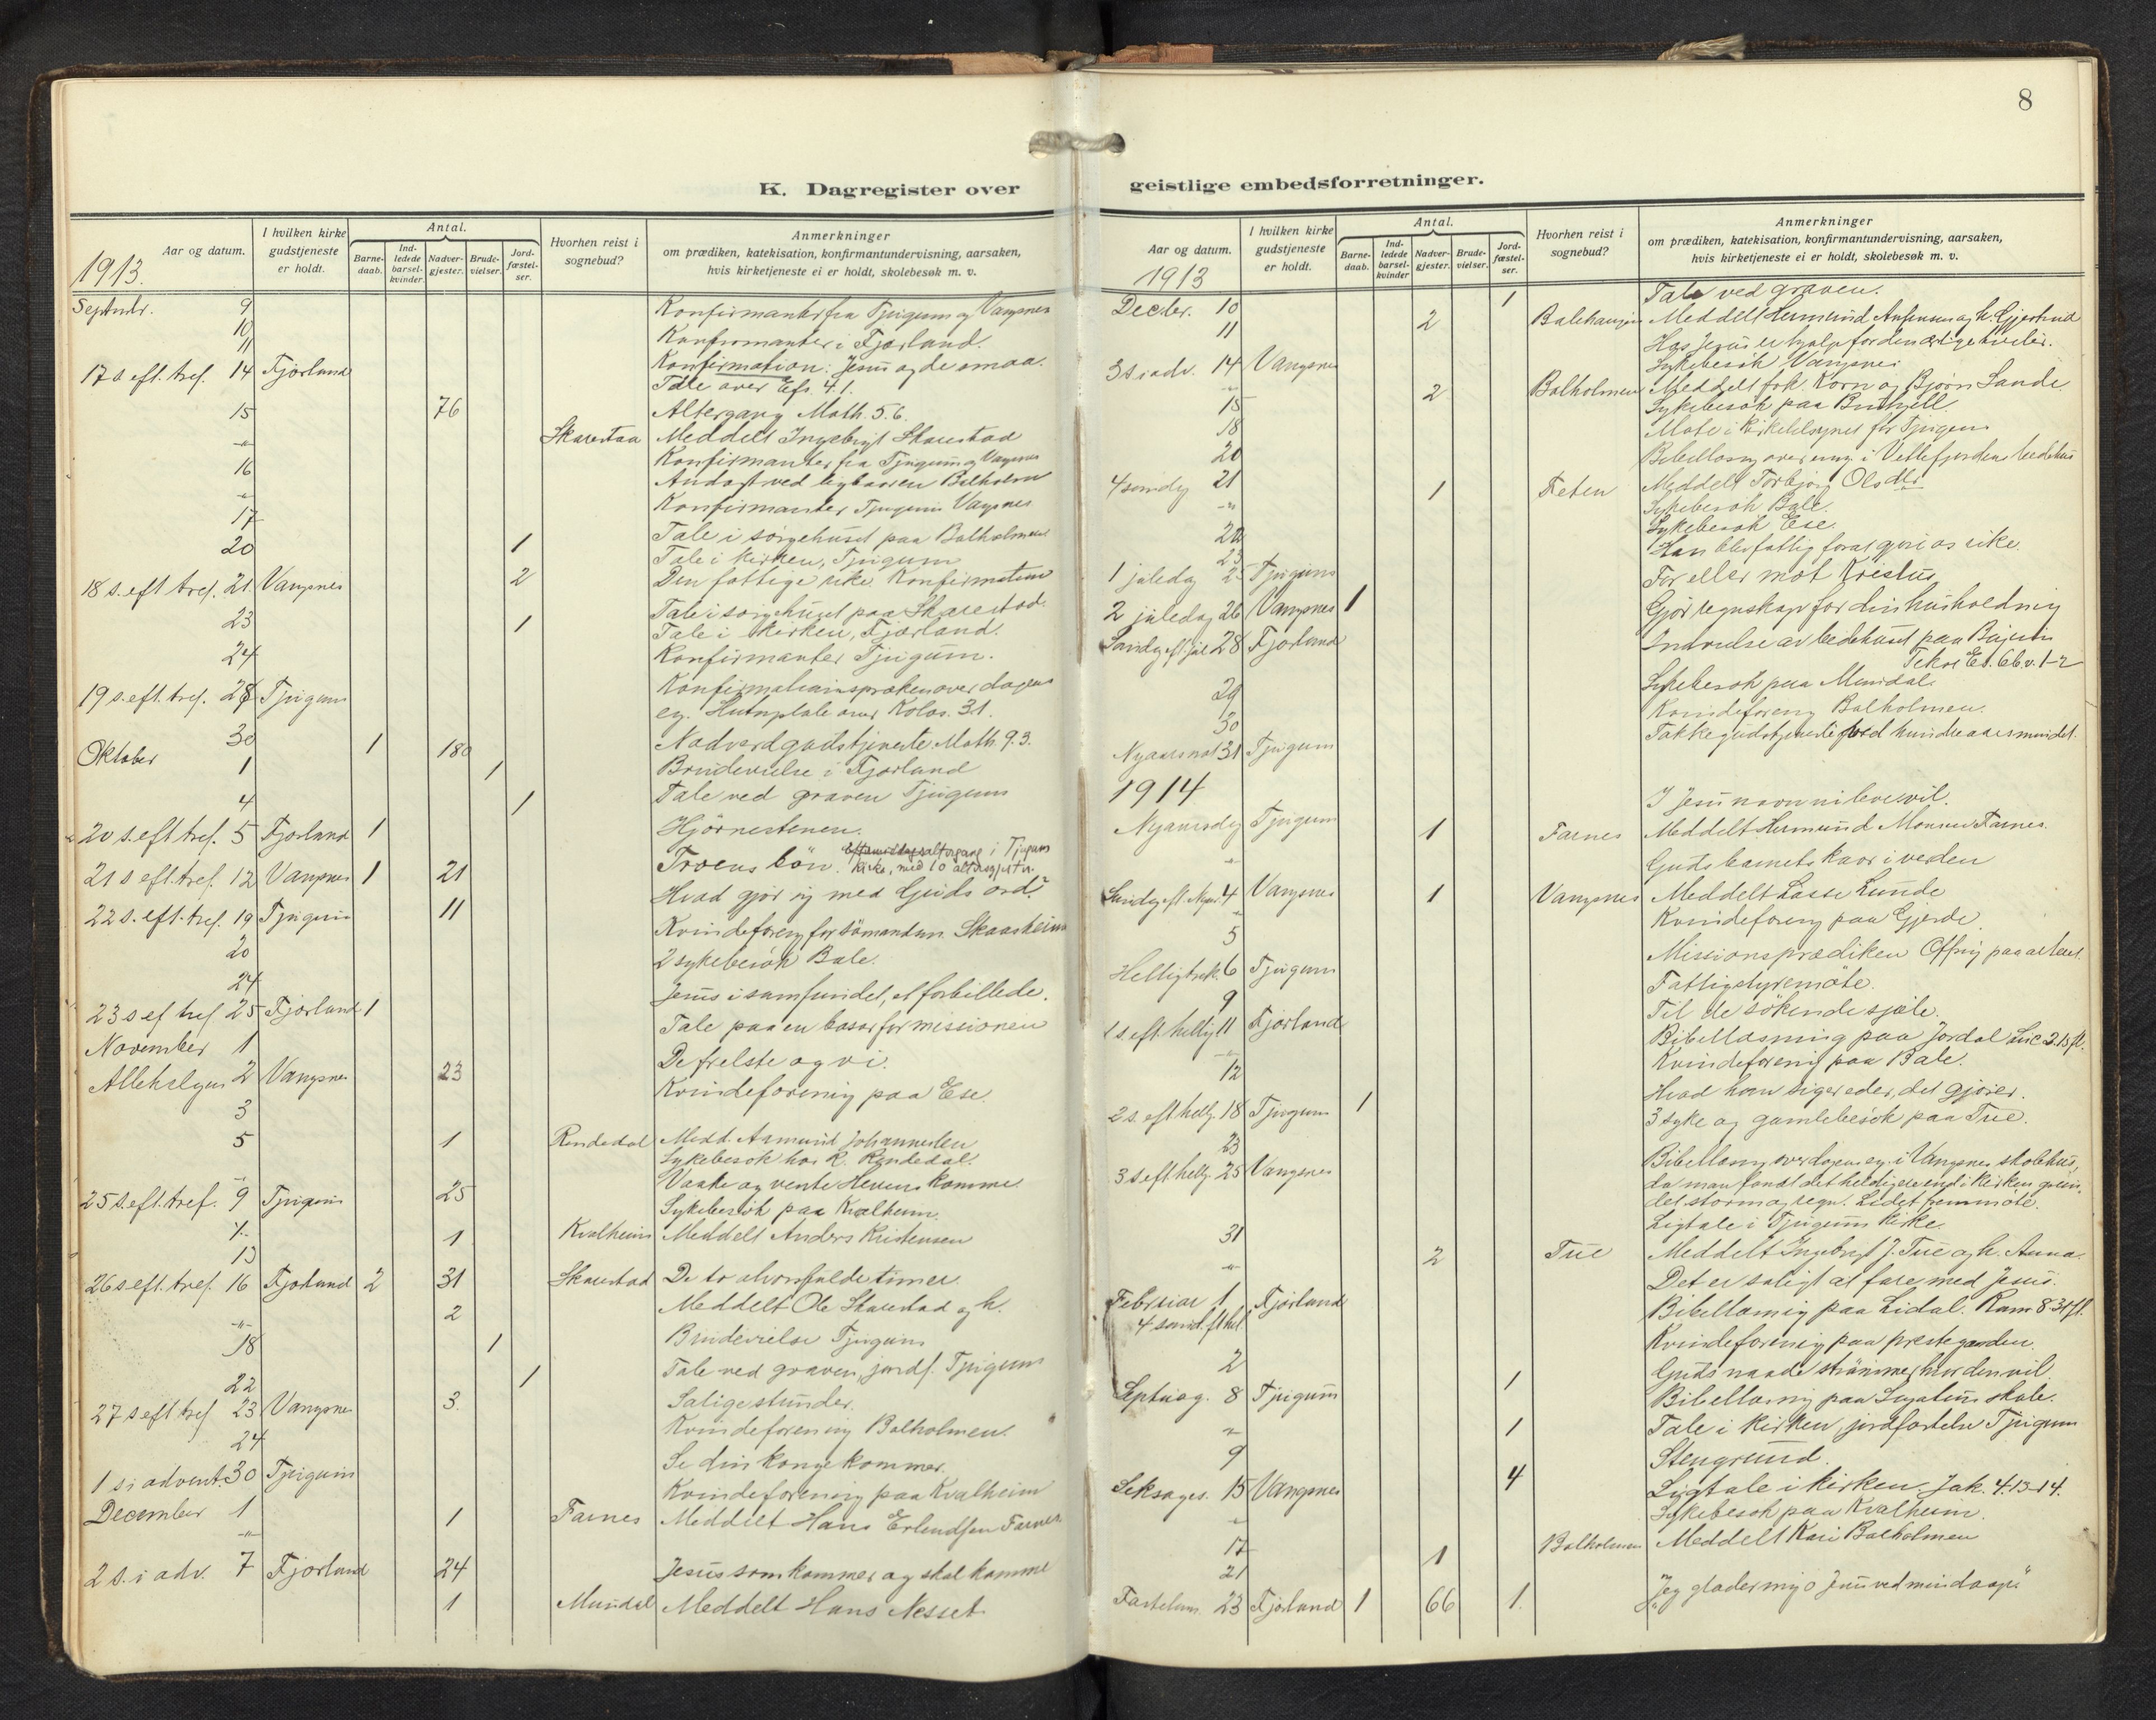 8
K. Dagregister over
geistlige embedsforretninger.
Aar og datum.
I hvilken kirke gudstjeneste er holdt.
Antal.
Barne-daab.
Ind-ledede barsel-kvinder.
Nadver-gjester.
Brude-vielser.
Jord-fæstel-ser.
Hvorhen reist i sognebud?
Anmerkninger
om prædiken, katekisation, konfirmantundervisning, aarsaken,
hvis kirketjeneste ei er holdt, skolebesøk m. v.
1913.
Septmbr. 9 Konfirmanter fra Tjugum og Vangsnes
10 Konfirmanter i Fjærland.
11
17 s eft. tref. 14 Fjærland Konfirmation: Jesus og de smaa.
Tale over Efs. 4.1.
15 76 Altergang Math. 5.6.
-"- Skarestad Meddelt Ingebrigt Skarestad
16 Konfirmanter fra Tjugum og Vangsnes
-"- Andagt ved ligbaaren Balholm
17 Konfirmanter Tjugum Vangsnes
20 1 Tale i sørgehuset paa Balholmen
Tale i kirken, Tjugum
18 s. eft tref. 21 Vangsnes 2 Den fattige rike. Konfirmation
23 1 Tale i sørgehuset paa Skarestad.
Tale i kirken, Fjærland.
24 Konfirmanter Tjugum.
19 s. eft. tref. 28 Tjugum
Kolos. 3.1.
30 1 180 Nadverdgudstjeneste Math. 9.3.
Oktober 1 1 Brudevielse i Fjærland
4 1 Tale ved graven Tjugum
20 s. eft tref. 5 Fjærland 1 Hjørnestenen.
21 s eft. tref. 12 Vangsnes 1 21 Troens bøn. altergang i Tjugum
kirke, med 10 altergjester.
22 s. eft. tref. 19 Tjugum 11 Hvad gjør vi med Guds ord?
20 Kvindeforeng for sømandsm. Skaasheim
24 2 sykebesøk Bale.
23 s ef tref 25 Fjærland 1 Jesus i samfundet, et forbillede.
November 1 Tale paa en basar for missionen
Allehelgen 2 Vangsnes 23 De frelste og vi.
3 Kvindeforening paa Ese.
5 1 Rendedal Medd. Aamund Johannesen
Sykebesøk hos R. Rendedal.
25 s. eft. tref. 9 Tjugum 25 Vaake og vente Herrens komme.
Sykebesøk paa Kvalheim.
13 1 Kvalheim Meddelt Anders Kristensen
26 s eft. tref. 16 Fjærland 2 31 Skarestad De to alvorsfulde timer.
-"- 2 Meddelt Ole Skarestad og h.
18 1 Brudevielse Tjugum
22 1 Tale ved graven, jordf. Tjugum
27 s eft tref 23 Vangsnes 3. Salige stunder.
24 Kvindeforening Balholmen.
1 s i advent. 30 Tjugum Se din konge kommer.
December 1 Kvindeforening paa Kvalheim
-"- 1 Farnes Meddelt Hans Erlendsen Farnes
2 s. i adv. 7 Fjærland 24 Jesus som kommer og skal komme
1 Mundal Meddelt Hans Nesset.
Aar og datum.
I hvilken kirke gudstjeneste er holdt.
Antal.
Barne-daab.
Ind-ledede barsel-kvinder
Nadver-gjester.
Brude-vielser.
Jord-fæstel-ser.
Hvorhen reist i sognebud?
Anmerkninger
om prædiken, katekisation, konfirmantundervisning, aarsaken,
hvis kirketjeneste ei er holdt, skolebesøk m. v.
1913
Decbr. 10 1 Tale ved graven.
11 2 Meddelt Hermund og h. Gjertrud
3 s i adv. 14 Vangsnes Hos Jesus er hjælp for den ærlige tviler.
-"- Sykebesøk Vangsnes
15 2 Balholmen Meddelt frk. Korn og Bjørn Sande
Sykebesøk paa
18 Møte i kirketilsynet for Tjugum
20 Bibellæsning i Vetlefjordens bedehus
4 søndg 21 1 Feten Meddelt Torbjørg Olsdtr
-"- Sykebesøk Bale.
22 Sykebesøk Ese.
23
1 juledag 25 Tjugum Han blev fattig for at gjøre os rike.
2 juledag 26 Vangsnes 1 For eller mot Kristus
Søndg eft. jul 28 Fjærland Gjør regnskap for din husholdning
Indvielse av bedehuset paa
Tekst Es. 66 v. 1-2
29 Sykebesøk paa Mundal.
30 Kvindeforeng Balholmen.
Nyaarsnat 31 Tjugum Takkegudstjeneste hundreaarsmindet.
1914
Nyaarsdag Tjugum I Jesu navn vi leve vil.
-"- 1 Farnes Meddelt Hermund Monsen Farnes.
Søndg eft. Nyaar. 4 Vangsnes Guds barnets kaar i verden
-"- 1 Vangsnes Meddelt Lasse Lunde
5 Kvindeforeng paa Gjerde
Helligtrek. 6 Tjugum Missionsprædiken Offring paa alteret.
9 Fattigstyremøte.
1 s. eft. hellig 11 Fjærland Til de søkende sjæle.
-"- Bibellæsning paa Jordal Luc 2.15 fl.
12 Kvindeforening paa Bale.
2 s. eft hellg. 18 Tjugum 1 Hvad han siger eder, det gjører.
23 3 syke og gamlebesøk paa Tue.
3 s eft hellg. 25 Vangsnes Bibellæsng over dagens ev. i Vangsnes skolehus,
da man fandt det heldigere end i kirken
det storm og regn. Lidet fremmøte.
31 Ligtale i Tjugums kirke.
-"- 2 Tue Meddelt Ingebrigt J. Tue og h. Anna.
Februar 1 Fjærland Det er saligt at fare med Jesus.
4 sønd. eft hel. Bibellæsnig paa Lidal. Rom 8.31 fl.
2 Kvindeforening paa prestegaarden.
Septuag. 8 Tjugum 1 Guds naade strømmer hvor den vil
Bibellæsnig paa skole.
9 1 Tale i kirken, jordfæstelse Tjugum
Seksages. 15 Vangsnes 4 Stengrund.
-"- Ligtale i kirken Jak. 4.13-14.
17 Sykebesøk paa Kvalheim.
21 1 Balholmen Meddelt Kari Balholmen
Fastelavn 23 Fjærland 1 66 1. "Jeg glæder mig o Jesu ved min daap"